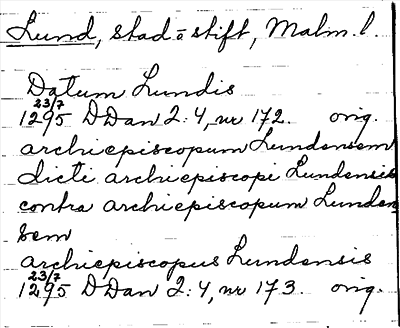 Lund, stad o stift, Malm. l.
Datum Lundis
23/7
1295 DDan 2:4, nr 172. orig.
archiepiscopum Lundensem
dicti archiepiscopi Lundensis
contra archiepiscopum Lunden
sem
archiepiscopus Lundensis
23/7
1295 DDan 2:4, nr 173. orig.